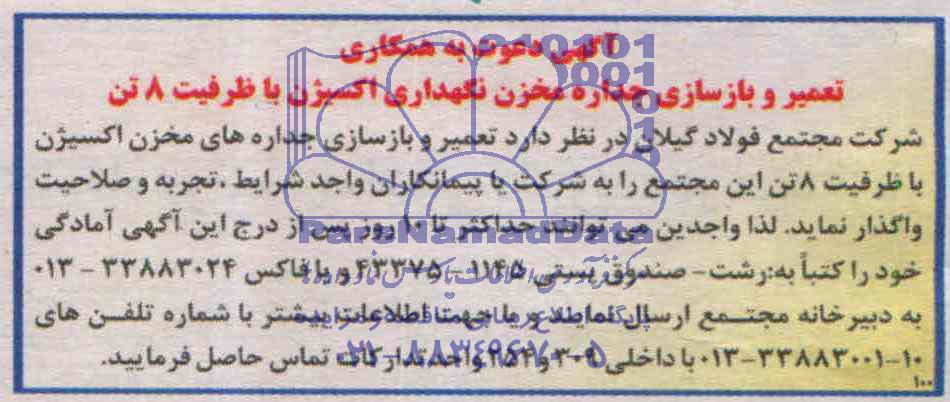 آگهی دعوت به همکاری
تعمیر و بازسازی جداره مخزن نگهداری اکسیژن با ظرفیت ۸ تن
شرکت مجتمع فولاد گیلان در نظر دارد تعمیر و بازسازی جداره های مخزن اکسیژن
با ظرفیت ۸ تن این مجتمع را به شرکت یا پیمانکاران واجد شرایط ، تجربه و صلاحیت
واگذار نماید. لذا واجدین می توانند حداکثر تا ۱۰ روز پس از درج این آگهی آمادگی
خود را کتباً به:رشت- صندوق پستی ۱۱۴۵ - ۴۳۳۷۵ و یا فاکس ۳۳۸۸۳۰۲۴ - ۰۱۳
به دبیرخانه مجتمع ارسال نمایند و یا جهت اطلاعات بیشتر با شماره تلفن های
۱۰-۳۳۸۸۳۰۰۱-۰۱۳ با داخلی ۳۰۹ و ۲۵۴ واحد تدارکات تماس حاصل فرمایید.
۱۰۰
ParsNamadData
۰۲۱-۸۸۳۴۹۶۷۰-۵